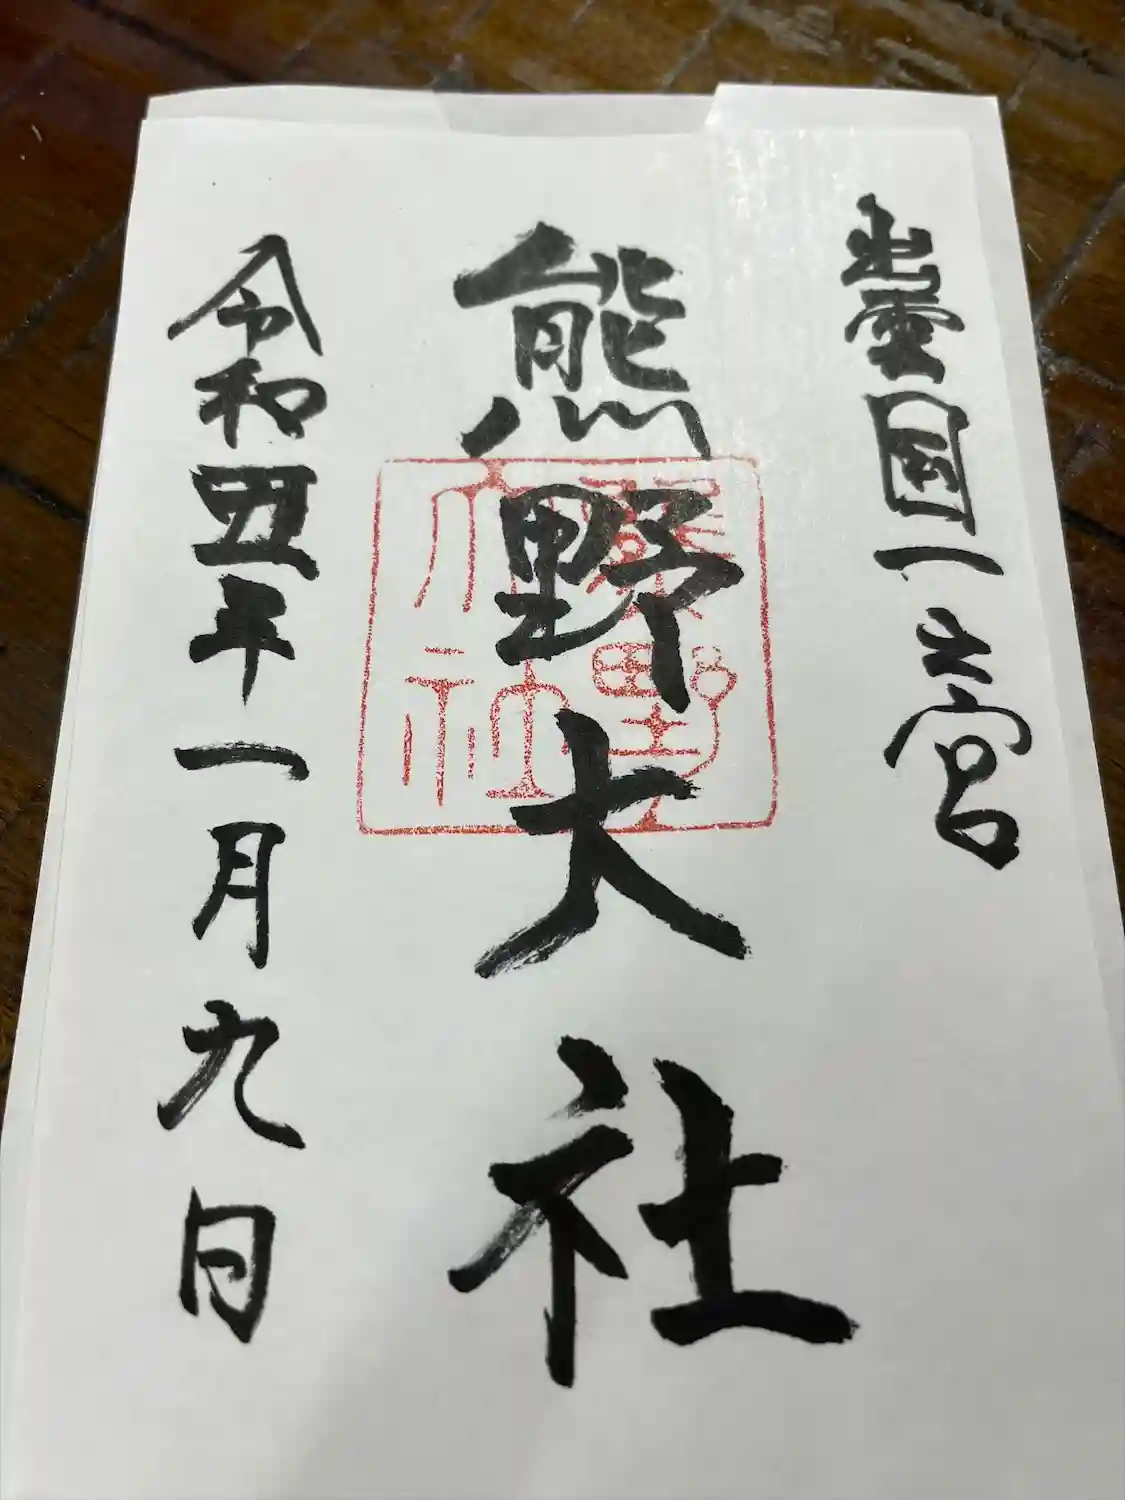 出雲國一之宮
熊野大社
令和四年一月九日